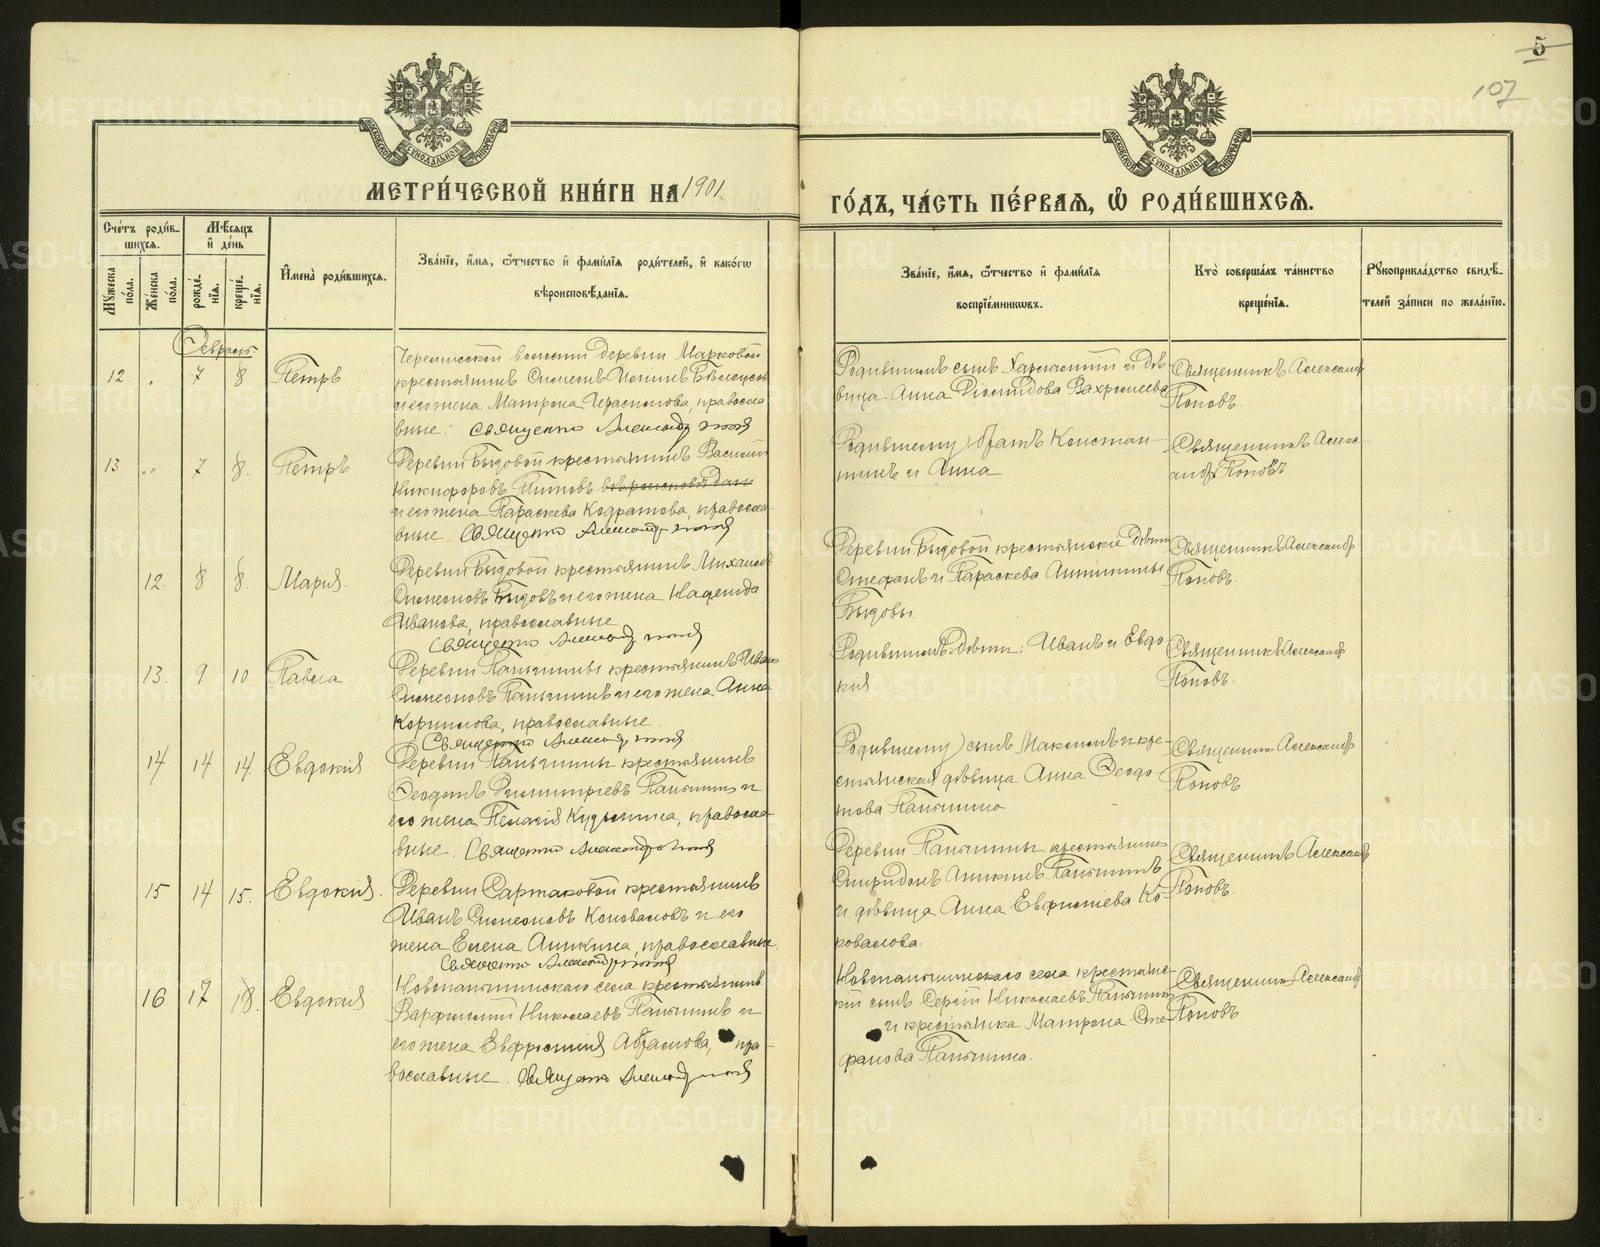 5
107
МЕТРИ́ЧЕСКОЙ КНИ́ГИ НА 1901
ГО́ДЪ, ЧА́СТЬ ПЕ́РВАѦ, Ѽ РОДИ́ВШИХСѦ.
Сче́тъ роди́в-
шихсѧ.
Мѣ́сѧцъ
и҆ де́нь
Мꙋ́жеска
по́ла.
Же́нска
по́ла.
рожде́-
нїѧ.
креще́-
нїѧ.
И҆мена̀ роди́вшихсѧ.
Зва́нїе, и҆́мѧ, ѻ҆́тчество и҆ фами́лїѧ роди́телей, и҆ како́гѡ
вѣроисповѣ́данїѧ.
Зва́нїе, и҆́мѧ, ѻ҆́тчество и҆ фами́лїѧ
воспрїе́мникѡвъ.
Кто̀ соверша́лъ та́инство
креще́нїѧ.
Рꙋкоприкла́дство свидѣ́-
телей за́писи по жела́нїю.
Февраль.
12 7 8 Петръ
волости деревни Марковой
крестьянинъ Симеонъ
и его жена Матрона Герасимова, правосла
вные. Священник Александр Попов
Родившимъ сынъ и дѣ
вица Анна Діомидова Вахромеева
Священникъ Александр
Поповъ.
13 7 8. Петръ
Деревни Быдовой крестьянинъ Василій
Никифоровъ Титовъ
и его жена Параскева Кодратова, правосла-
вные. Священник Александр Попов
Родившему братъ Констан-
тинъ и Анна
Священникъ Алекс
андръ Поповъ
12. 8 8. Марія.
Деревни Быдовой крестьянинъ Михаилъ
Симеоновъ Быдовъ и его жена Надежда
Иванова, православные
Священник Александр Попов
Деревни Быдовой крестьянскіе дѣти
Стефанъ и Параскева
Быдовы.
Священникъ Александр
Поповъ.
13. 9 10 Павла
Деревни Паньшины крестьянинъ Иванъ
Симеоновъ Паньшинъ и его жена Анна
Корнилова, православные.
Священник Александр Попов
Родившимъ дѣти: Иванъ и Евдо
кія
Священникъ Александр
Поповъ.
14 14 14. Евдокія
Деревни Паньшины крестьянинъ
Феодотъ Димитріевъ Паньшинъ и
его жена Пелагія правосла-
вные. Священник Александр Попов
Родившему сынъ Максимъ и кре-
стьянская дѣвица Анна Феодо-
това Паньшина
Священник Александр
Поповъ
15 14 15. Евдокія.
Деревни Сартаковой крестьянинъ
Иванъ Симеоновъ Коноваловъ и его
жена Елена Аникина, православные.
Священник Александр Попов
Деревни Паньшины крестьянинъ
Спиридонъ Аникинъ Паньшинъ
и дѣвица Анна Евфимiева Ко-
новалова.
Священникъ Александр
Поповъ.
16 17 18. Евдокія
Новопаньшинскаго села крестьянинъ
Варфоломій Николаевъ Паньшинъ и
его жена Евфросинія Абрамова, пра-
вославные. Священник Александр Попов
Новопаньшинскаго села крестьянс-
кій сынъ Сергій Николаевъ Паньшинъ
и крестьянка Матрона Сте-
фанова Паньшина.
Священник Александр
Поповъ